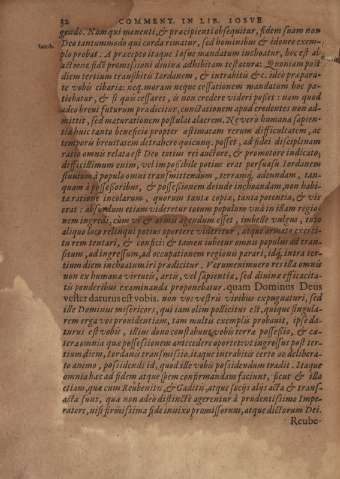 52 COMMENT. IN LIB. IOSVE
gendo. Nam qui monenti, & præcipienti obsequitur, fidem suam non
Deo tantummodo qui corda rimatur, sed hominibus & idoneo exem-
plo probat. A præcepto itaque Iosue mandatum inchoatur, hoc est ab
actione fidei promissioni diuina adhibitam testatura: Quoniam post
diem tertium transibitis Iordanem, & intrabitis &c. ideo præpara-
te vobis cibaria: neq. moram neque cessationem mandatum hoc pa-
tiebatur, & si quis cessaret, is non credere videri posset: nam quod
adeo breui futurum prædicitur, cunctationem apud credentes non ad-
mittit, sed maturationem postulat alacrem. Ne verò humana sapien-
tia huic tanto beneficio propter æstimatam rerum difficultatem, ac
temporis breuitatem detrahere quicquam posset, ad fidei disciplinam
ratio omnis relata est Deo totius rei auctore, & promotore indicato,
difficillimum enim, vel impossibile potius erat persuasu Iordanem
fluuium à populo omni transmittendum, terramq. adeundam, tan-
quam à possessoribus, & possessionem deinde inchoandam, non habi-
ta ratione incolarum, quorum tanta copia, tanta potentia, & vis
erat: absurdum etiam videretur totum populum vnà in illam regio-
nem ingredi, cum vi & armis agendum esset, imbelle vulgus, tuto
aliquo loco relinqui potius oportere videretur, atque armato exerci-
tu rem tentari, & confici: & tamen iubetur omnis populus ad tran-
situm, ad ingressum, ad occupationem regionis parari, idq. intra ter-
tium diem inchoaturi prædicitur. Verumenimuero res illa omnis
non ex humana virtutis, artis, vel sapientiæ, sed diuinæ efficacita-
tis ponderibus examinanda proponebatur. quam Dominus Deus
vester daturus est vobis. non vos vestris viribus expugnaturi, sed
ille Dominus misericors, qui tam olim pollicitus est, quique singula-
rem erga vos prouidentiam, tam multis exemplis probauit, ipse da-
turus est vobis, illius dono constabunt vobis terræ possessio, & cæ-
tera omnia quæ possessionem antecedere oportet: vt ingressus post ter-
tium diem, Iordanis transmissio. itaque intrabitis certo ac delibera-
to animo, possidendi id, quod ille vobis possidendum tradit. Itaque
omnia hæc ad fidem atque spem confirmandam faciunt, sicut & illa
etiam, quæ cum Rubenitis, & Gaditis, atque socijs alijs acta & trans-
acta sunt, quæ non adeo distinctè agerentur à prudentissimo Impe-
ratore, nisi firmissima fide inuixa promissorum, atque dictorum Dei.
Reube-